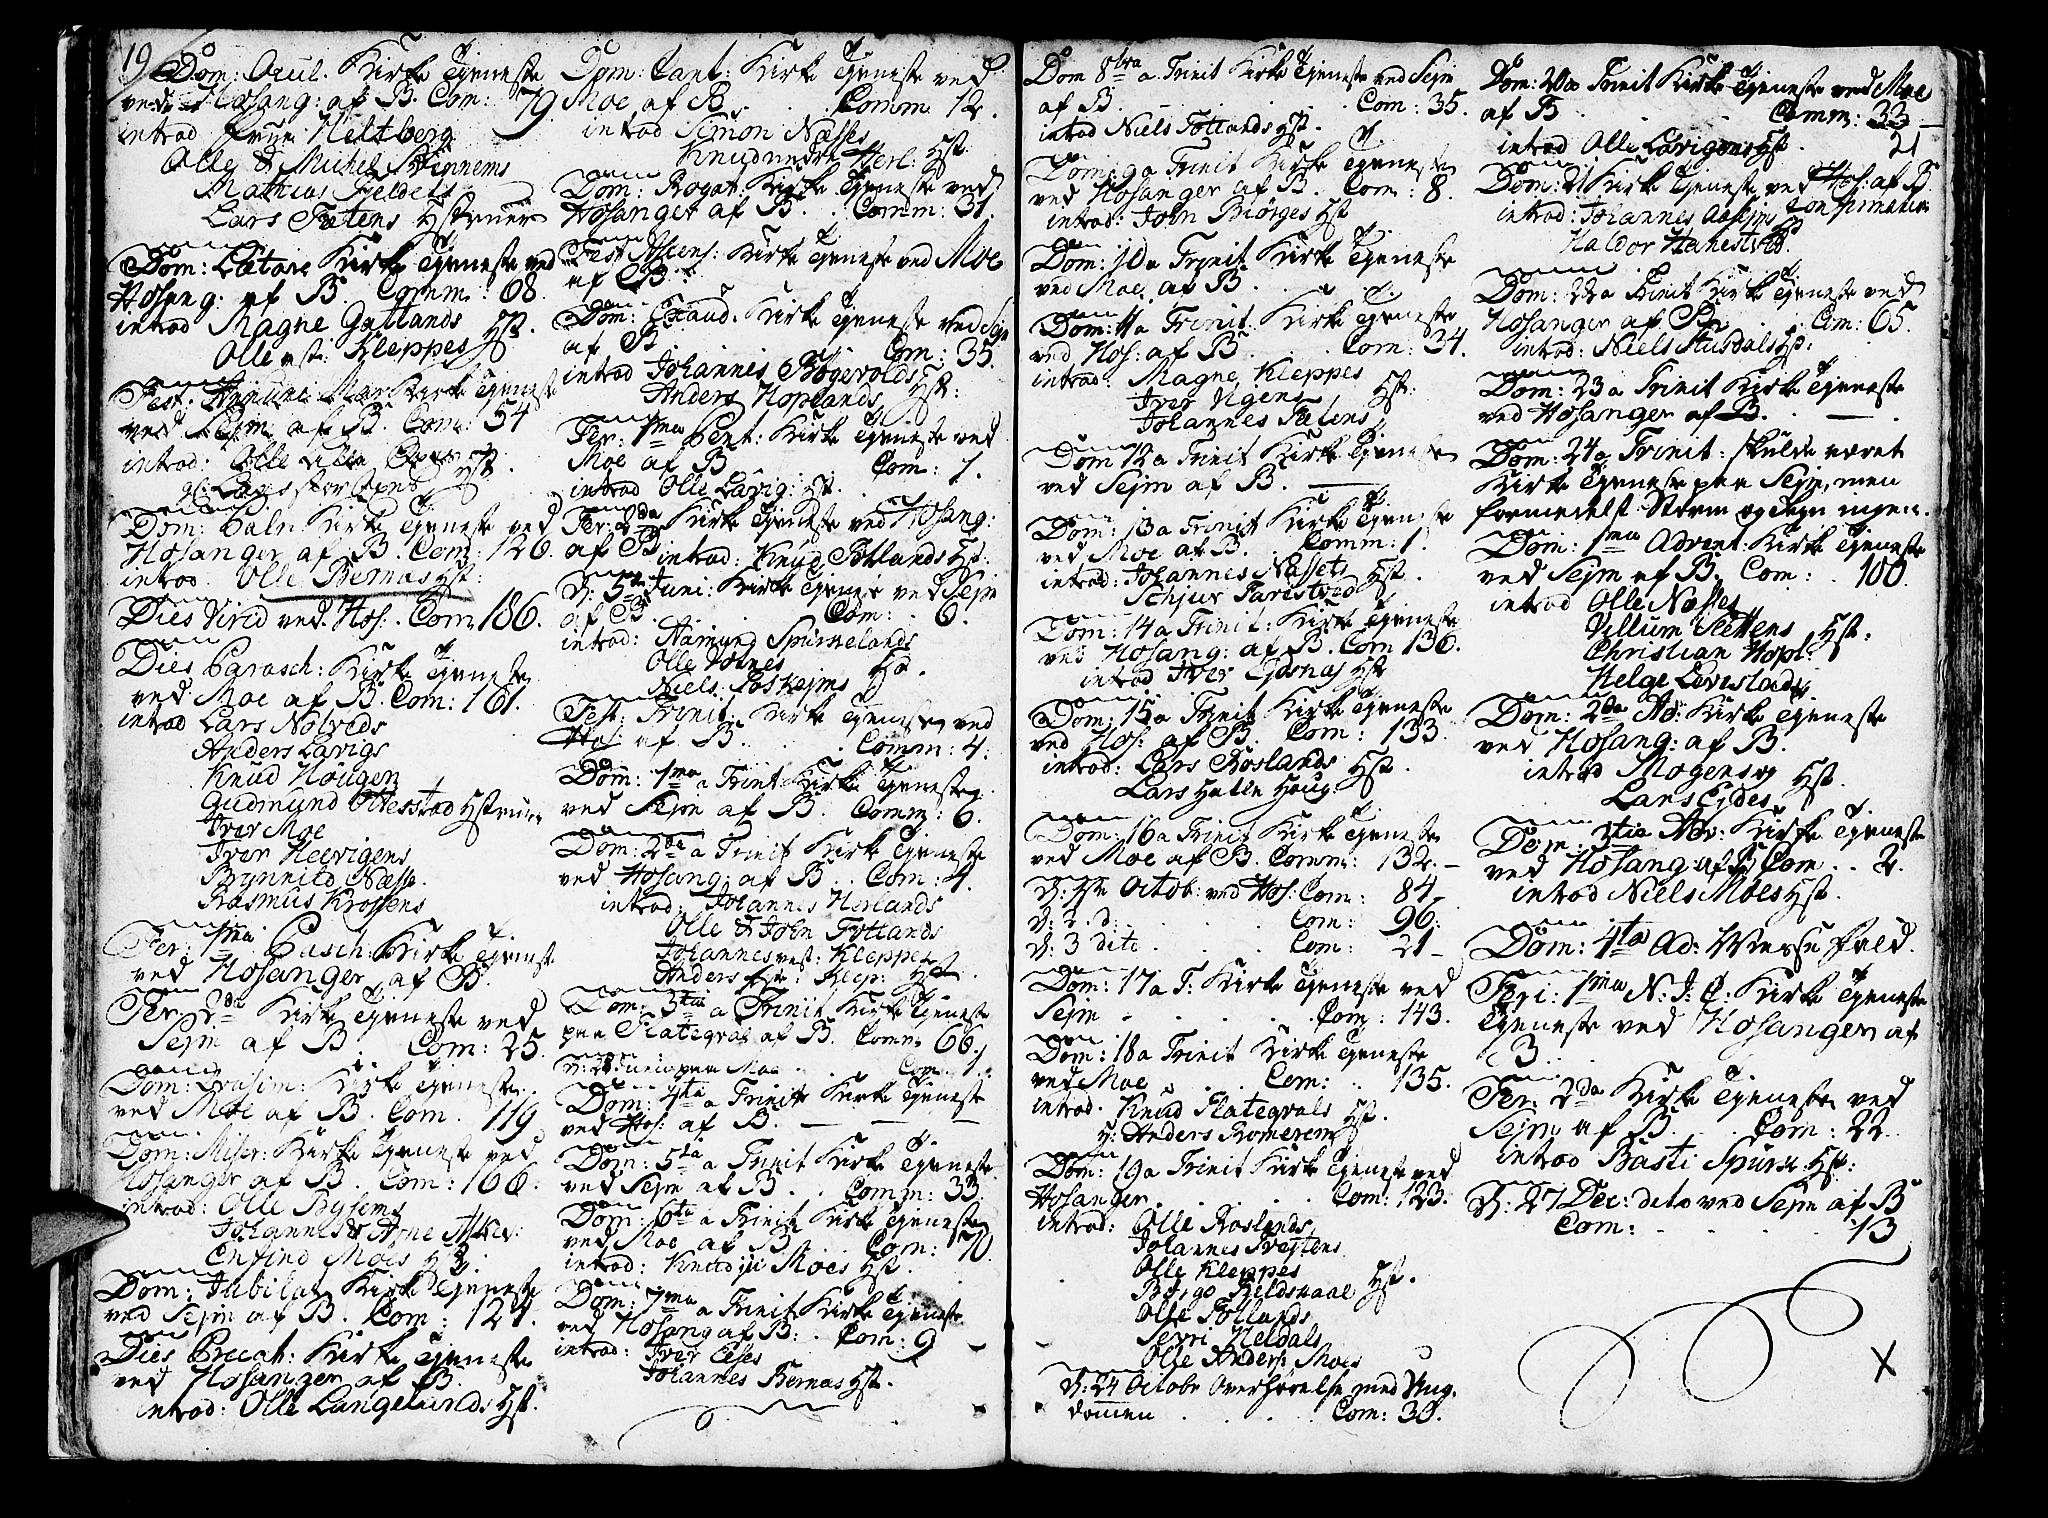 19
Dom: Ocul. Kirke Tjeneste
ved Hosang: af B. Com: 79
introd fruu Heltberg
Olle & Michel
Mathias Fjeldets
Lars Tatens Hstruer
Dom: Lætare Kirke Tjeneste ved
Hosang: af B. Comm: 68.
introd Magne Gatlands
Olle vest: Kleppes Hst.
Fest: Annunc Mar Kirke Tjeneste
ved Sejm af B. Com: 54
introd: Olle
Hst.
Dom: Palm Kirke Tjeneste ved
Hosanger af B. Com: 126.
introd. Olle Bernas Hst:
Dies Virid ved Hos: Com 186.
Dies Parasch: Kirke Tjeneste
ved Moe af B. Com: 161.
introd Lars Notveds
Anders Lavigs
Knud Hougen
Gudmund Otterstad Hstruer
Iver Moe
Iver Hervigens
Brynnild Næsse.
Rasmus Krossens
Fer: 1ma Pasch: Kirke Tjeneste
ved Hosanger af B.
Fer: 2da Kirke Tjeneste ved
Sejm af B Com: 25.
Dom: Qvasim: Kirke Tjeneste
ved Moe af B. Com. 119
Dom: Miser: Kirke Tjeneste ved
Hosanger af B. Com: 166.
introd: Olle Bysems
Johannes & Arne
Enfind Moes H
Dom: Jubilat Kirke Tjeneste
ved Sejm af B. Com: 124.
Dies Precat: Kirke Tjeneste
ved Hosanger af B.
introd: Olle Langelunds Hst.
Dom: Cant: Kirke Tjeneste ved
Moe af B. Comm 12.
introd Simon Næsses
Knud nedre Herl: Hst.
Dom: Rogat: Kirke Tjeneste ved
Hosanger af B. Comm: 31.
Fest Ascens: Kirke Tjeneste ved Moe
af B.
Dom: Exaud. Kirke Tjeneste ved Sejm
af B Com: 35.
introd Johannes Bøgevolds
Anders Hoplands Hst:
Fer: 1ma Pent: Kirke Tjeneste ved
Moe af B Com: 1.
introd Olle Lavig: Hst.
Fer: 2da Kirke Tjeneste ved Hosang:
af B introd: Knud Totlands Hst:
D: 5te Juni: Kirke Tjeneste ved Sejm
af B. Com: 6.
introd: Aamund Spurkelands
Olle Votnes Hst.
Niels Røskejms
Fest: Trinit. Kirke Tjeneste ved
Hos: af B. Comm: 4.
Dom: 1ma a Trinit Kirke Tjeneste
ved Sejm af B. Comm: 6.
Dom: 2da a Trinit Kirke Tjeneste
ved Hosang: af B. Com: 4.
introd: Johannes Herlands
Olle & Joen Totlands
Johannes vest: Kleppe
Anders Klep: Hst.
Dom: 3tia a Trinit Kirke Tjeneste
paa Flategral af B. Comm: 66.
paa Moe Com: 1.
Dom: 4ta a Trinit Kirke Tjeneste
ved Hos: af B.
Dom: 5ta a Trinit Kirke Tjeneste
ved Sejm af B. Comm: 33.
Dom: 6ta a Trinit Kirke Tjeneste
ved Moe af B. Com: 70.
introd: Knud Moes Hst.
Dom: 7ma a Trinit Kirke Tjeneste
ved Hosang af B. Com: 9
introd: Iver Eses
Johannes Bernas Hst.
Dom 8tva a Trinit Kirke Tjeneste ved Sejm
af B. Com: 35.
introd Niels Totlands Hst.
Dom: 9a Trinit Kirke Tjeneste
ved Hosanger af B. Com: 8.
introd: John Biørges Hst
Dom: 10a Trinit Kirke Tjeneste
ved Moe af B.
Dom: 11a Trinit: Kirke Tjeneste
ved Hos: af B. Com: 34.
introd: Magne Kleppes
Iver Vigens Hst.
Johannes Tatens
Dom 12a Trinit Kirke Tjeneste
ved Sejm af B.
Dom: 13a Trinit Kirke Tjeneste
ved Moe af B. Comm: 1.
introd: Johannes Næssets
Schjur Farestved Hst.
Dom: 14a Trinit: Kirke Tjeneste
ved Hosang: af B. Com 136.
introd Iver Ejdsnæs Hst
Dom: 15a Trinit Kirke Tjeneste
ved Hos: af B. Com: 133.
introd: Lars Røslands
Lars Halle Houg Hst.
Dom: 16a Trinit Kirke Tjeneste
ved Moe af B. Comm: 132.
D: 1ste Octob: ved Hos: Com: 84
D: 2 d: Com: 96.
D: 3 dito Com: 21
Dom: 17a T: Kirke Tjeneste ved
Sejm Com: 143.
Dom: 18a Trinit Kirke Tjeneste
ved Moe Com: 135.
introd. Knud Flategrals
Anders Romerem Hst.
Dom: 19a Trinit Kirke Tjeneste ved
Hosanger Com: 123.
introd: Olle Røslands
Johannes Trejtens
Olle Kleppes
Børge Heldsdaal Hst.
Olle Totlands
Sevri Heldals
Olle Anders: Moes
D: 24 Octobr Overhørelse med Ung.
dommen Com: 30.
Dom: 20a Trinit Kirke Tjeneste ved Moe
af B Comm: 33
21
introd Olle Lavigens Hst.
Dom: 21 Kirke Tjeneste ved Hos: af B.
introd: Johannes Confirmation
Haldor Hanestved
Dom: 22a Trinit Kirke Tjeneste ved
Hosanger af B. Com: 65.
introd: Niels Husdals Hst:
Dom: 23a Trinit Kirke Tjeneste
ved Hosanger af B.
Dom: 24a Trinit: skulde været
Kirke Tjeneste paa Sejm, men
formedelst Storm og Regn ingen.
Dom: 1ma Advent: Kirke Tjeneste
ved Sejm af B. Com: 100.
introd Olle Næsses
Villum Slettens Hst.
Christian Hopl:
Helge Leirstads
Dom: 2da Ad: Kirke Tjeneste
ved Hosang: af B.
introd Mogens og Hst.
Lars Ejdes
Dom: 3tia Adv: Kirke Tjeneste
ved Hosang af B Com 2.
introd Niels Moes Hst.
Dom: 4ta Ad: Messe fald.
Feri: 1ma N: J: C: Kirke Tjeneste
Tjeneste ved Hosanger af
B.
Fer: 2da Kirke Tjeneste ved
Sejm af B. Com: 22.
introd Basti Spurk Hst:
D: 27 Dec: dito ved Sejm af B
Com: 13
X